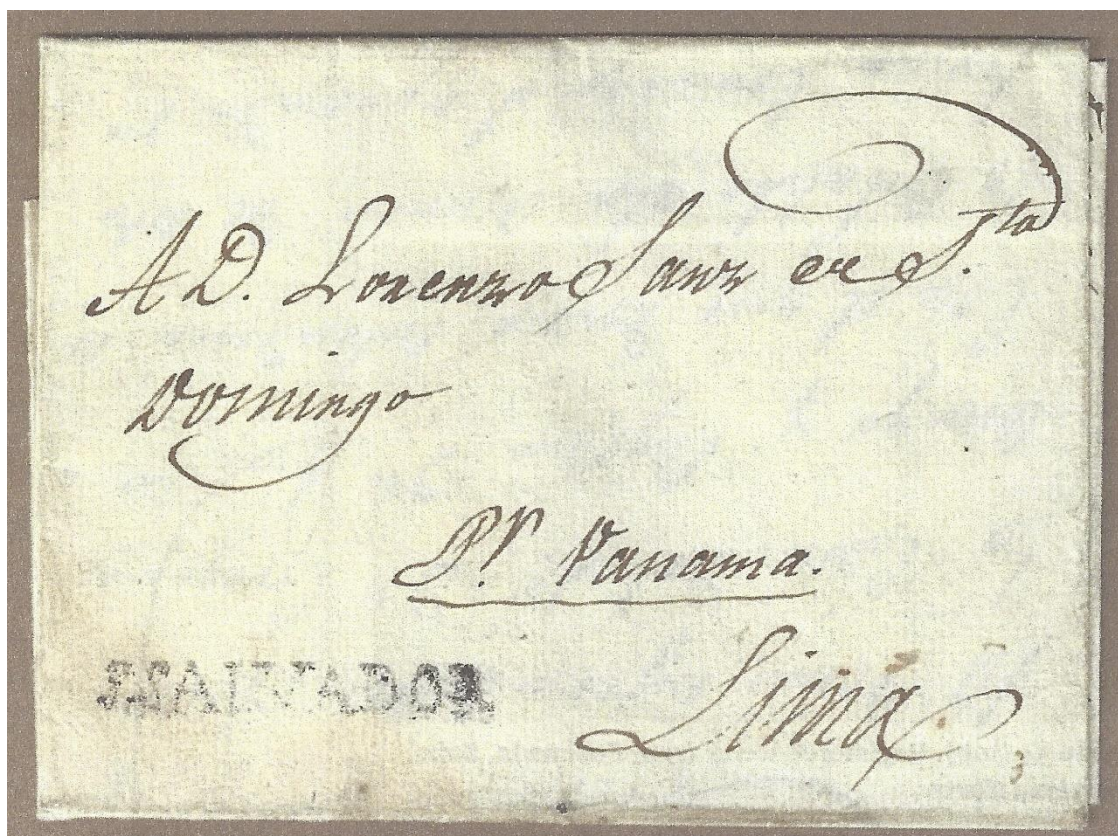 A D. Lorenzo Sanz de S.ta
Domingo
P.r Panama.
Lima
SALVADOR